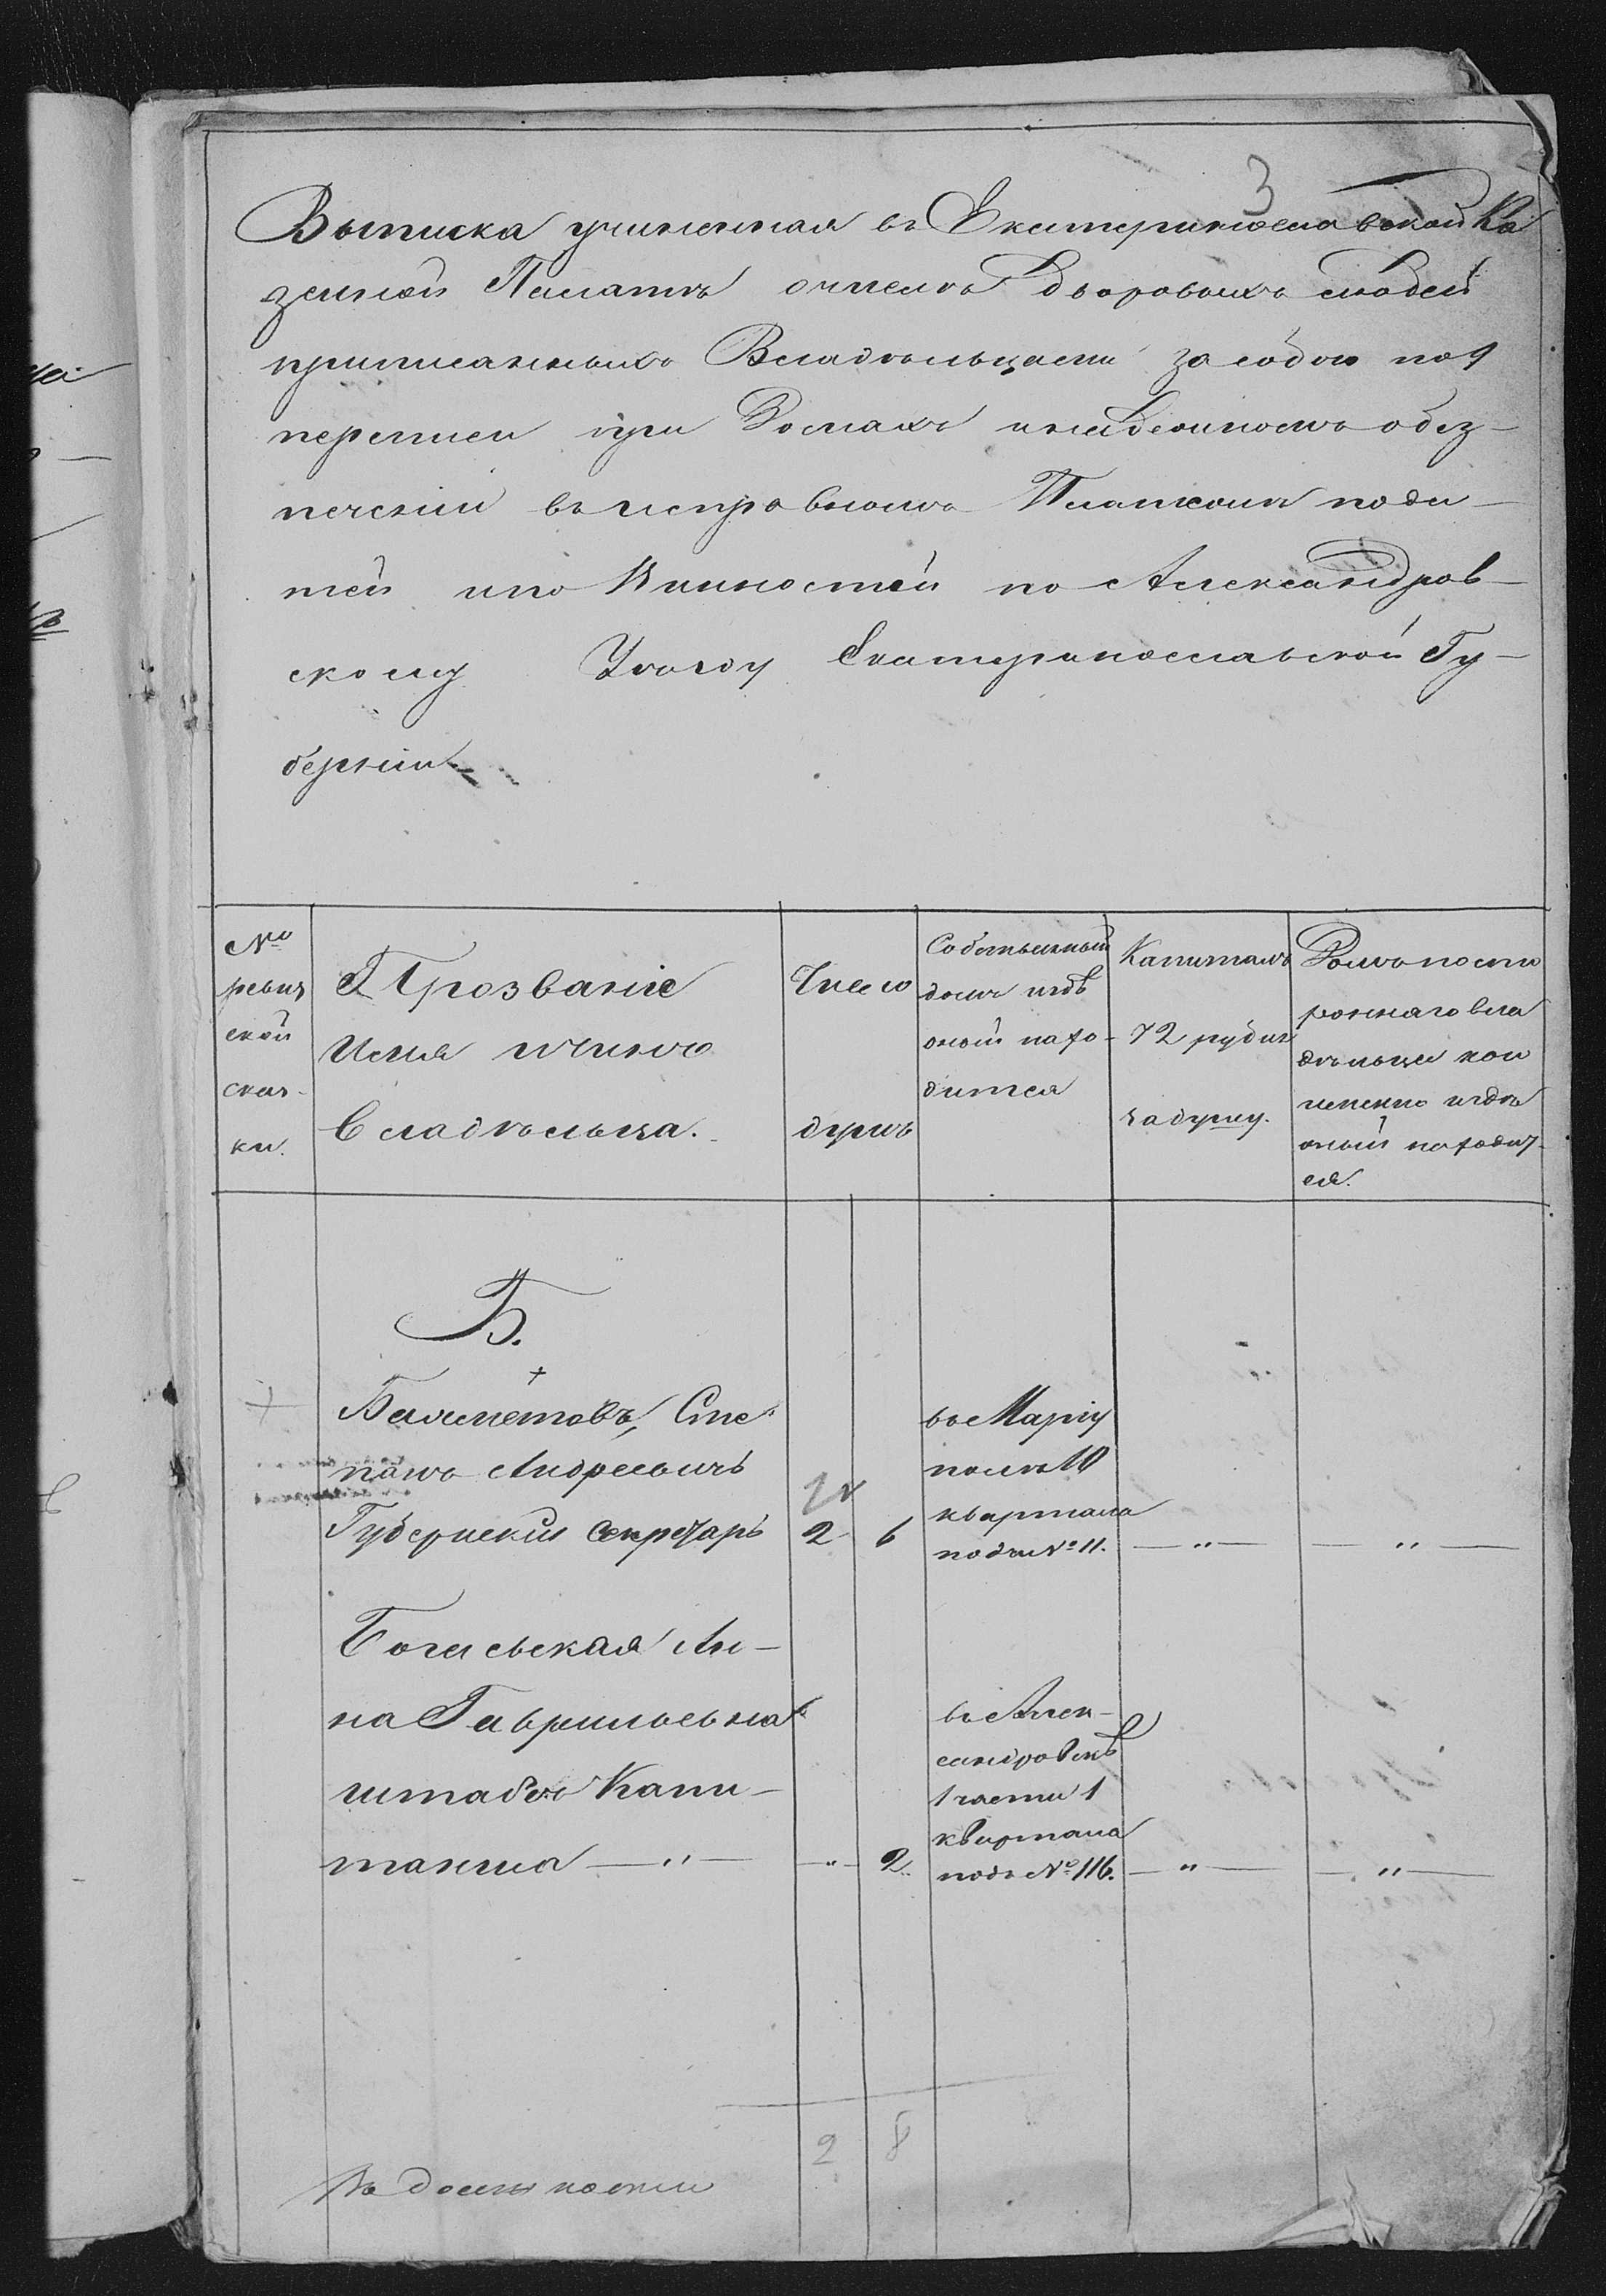 3
Выписка учиненная въ Екатеринославской Ка
зенной Палатѣ о числѣ дворовыхъ людей
приписанныхъ Владѣльцами за собою по 9
переписи при домахъ
печеніи въ исправномъ Платежѣ пода-
тей и по Винностей по Александров-
скому Уѣзду Екатеринославской Гу-
берніи
№
ревиз
ской
сказ-
ки.
Прозваніе
Имя и чинъ
Владѣльца.
Число
душъ
Собственный
домъ и гдѣ
оный нахо-
дится
Капиталъ
72 рубли
за душу.
Домъ посто
роннаго вла
дѣльца кои
и гдѣ
оный находит-
ся.
Б.
Степанъ Андреевичъ
Губернскій Секретарь
2 6
въ Маріу
полѣ 10
квартала
подъ № 11.
— " —
— " —
Ан-
на Гавриловна
штабсъ Капи-
танша — " —
— " — 2
въ Алек-
сандровскѣ
1 части 1
квартала
подъ № 116.
— " —
— " —
2 8